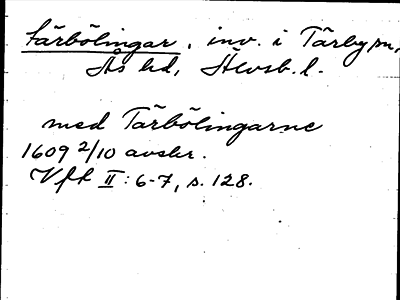 tärbölingar, inv. i Tärby sn,
Ås hd, Älvsb. l.
med Tärbölingarne
1609 2/10 avskr.
Vft II: 6-7, s. 128.